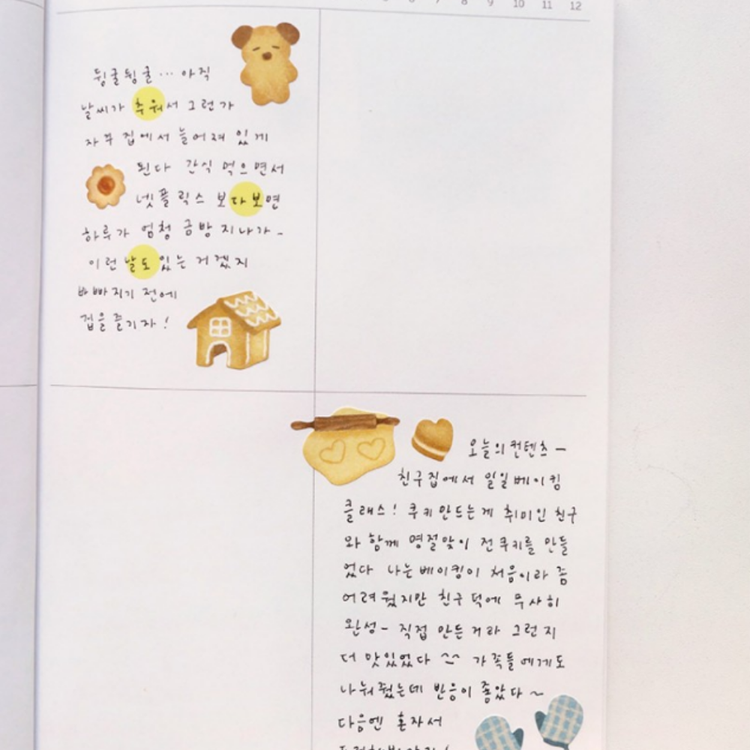 8 9 10 11 12
뒹굴뒹굴... 아직
날씨가 추워서 그런가
자꾸 집에서 늘어져 있게
된다 간식 먹으면서
넷플릭스 보다보면
하루가 엄청 금방 지나가-
이런 날도 있는 거겠지
바빠지기 전에
집을 즐기자!
오늘의 컨텐츠-
친구집에서 일일베이킹
클래스! 쿠키만드는게 취미인 친구
와 함께 명절맞이 전쿠키를 만들
었다 나는 베이킹이 처음이라 좀
어려웠지만 친구 덕에 무사히
완성- 직접 만든거라 그런지
더 맛있었다 ^^ 가족들에게도
나눠줬는데 반응이 좋았다~
다음엔 혼자서